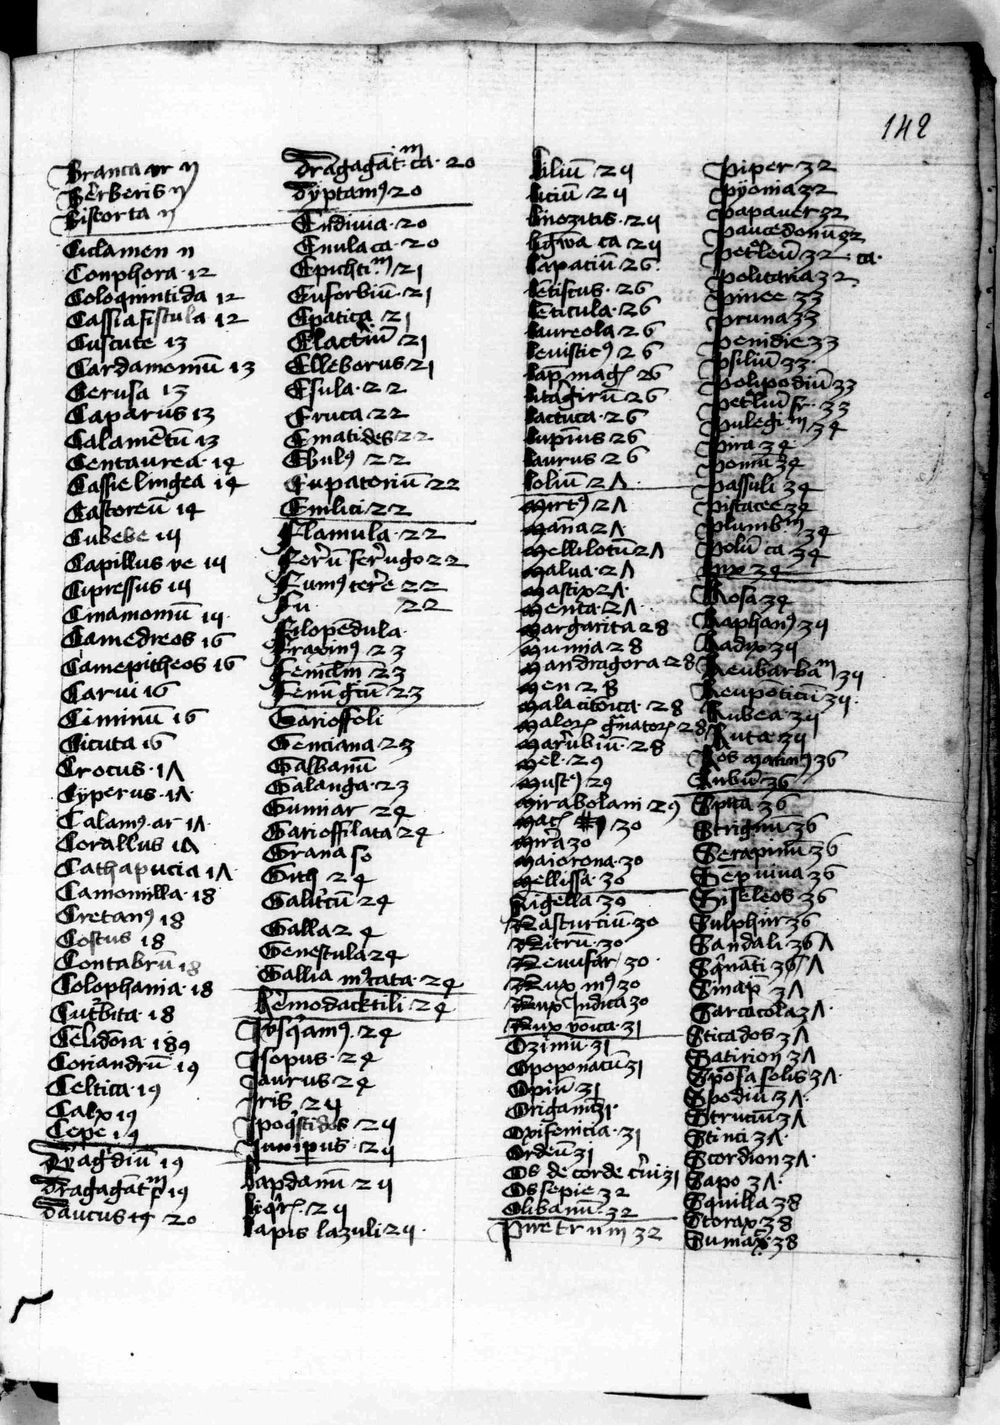 142
Branca ar 11
Berberis 11
Bistorta 11
Ciclamen 11
Conphora 12
Coloquintida 12
Cassiafistula 12
Cuscute 13
Cardamomū 13
Cerusa 13
Caparus 13
Calamētū 13
Centaurea 14
Cassie lingea 14
Castoreū 14
Cubebe 15
Capillus ve 15
Cipressus 15
Cinamomū 15
Camedreos 16
Camepitheos 16
Carui 16
Ciminū 16
Cicuta 16
Crocus 17
Cyperus 17
Calamꝰ ar 17
Corallus 17
Cathapucia 17
Camomilla 18
Cretanꝰ 18
Costus 18
Contabrū 18
Colophania 18
Cucᵣbita 18
Celidōia 189
Coriandrū 19
Celtica 19
Calx 19
Cepe 19
Dyagᵃdiū 19
Dragagāt 19
Daucus 19 20
Dragagāt ca 20
Dyptamꝰ 20
Endiuia 20
Enula ca 20
Epichtiᵐ 21
Euforbiū 21
Epatica 21
Elactiū 21
Elleborus 21
Esula 22
Eruca 22
Ematides 22
Ebulꝰ 22
Eupatoriū 22
Emlici 22
Flamula 22
Ferrū ferrugo 22
Fumꝰ terre 22
Fu 22
Filopēdula
Fraxinꝰ 23
Feniclm 23
Fenūgcū 23
Garioffoli
Genciana 23
Galbanū
Galanga 23
Gumiar 24
Gariofilata 24
Grana so
Gith 24
Galitcū 24
Galla 24
Genestula 24
Gallia mꝰcata 24
Hermodacktili 24
Jusqᵃmꝰ 24
Jsopus 24
Jaurus 24
Jris 25
Jpoqᵃstidos 25
Junipus 25
Lapdanū 25
Liqᵣ 25
Lapis lazuli 25
Liliū 25
Liciū 25
Linozitis 25
Ligwa ca 25
Lapaciū 26
Lētiscus 26
Lēticula 26
Laureola 26
Leuisticꝰ 26
Lap magⁿ 26
Litagirū 26
Lactuca 26
Lupinus 26
Laurus 26
Loliū 27
Mirtꝰ 27
Māna 27
Mellilotū 27
Malua 27
Mastix 27
Menta 27
Margarita 28
Mumia 28
Mandragora 28
Men 28
Mala citōica 28
Maloꝝ gᵃnatoꝝ 28
Marrubiū 28
Mel 29
Muscꝰ 29
Mirabolani 29
Mac 30
Mirra 30
Maiorana 30
Mellissa 30
Nigella 30
Nasturciū 30
Nitrū 30
Nenufar 30
Nux mꝰ 30
Nux Jndica 30
Nux vōica 31
Ozimū 31
Opoponacū 31
Opiū 31
Origanū 31
Oxifenicia 31
Ordeū 31
Os de corde cᵣui 31
Os sepie 32
Olibanū 32
Piretrum 32
Piper 32
Pyonia 32
Papauer 32
Paucedonū 32
Petᵒleū 32 ca
Politaria 32
Pinee 33
Pruna 33
Penidie 33
Psiliū 33
Polipodiū 33
Petᵒliū fr 33
Pulegiᵐ 34
Pira 34
Pomū 34
Passuli 34
Pistacee 34
Plumbᵐ 34
Poliū ca 34
Pix 34
Rosa 34
Raphanꝰ 35
Radyx 35
Reubarbaᵐ 35
Reupoticū 35
Rubea 35
Ruta 35
Ros marinꝰ 36
Rubū 36
Spica 36
Strignū 36
Serapinū 36
Sēpuiua 36
Siseleos 36
Sulphur 36
Sandali 36
Sqᵃnāti 36
Sinap 37
Sarcacola 37
Sticados 37
Satirion 37
Spōsa solis 37
Spodiū 37
Struciū 37
Stinci 37
Scordion 37
Sapo 37
Squilla 38
Storax 38
Sumac 38